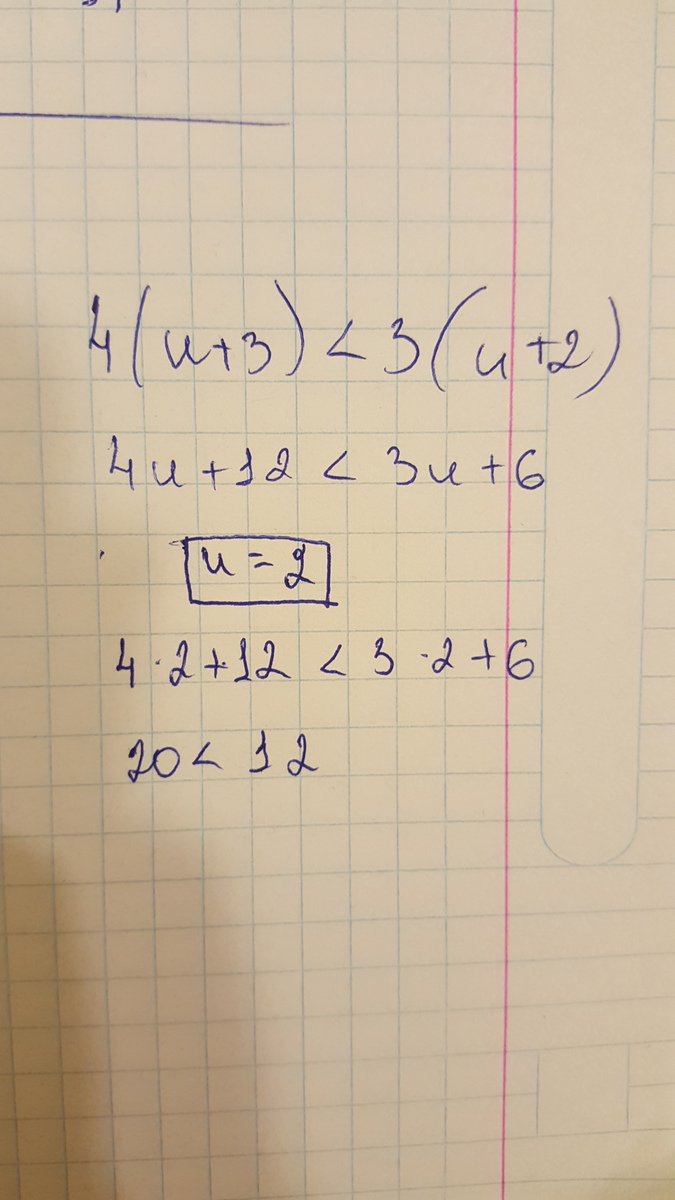 4(u+3)<3(u+2)
4u+12 < 3u+6
u=2
4·2+12 < 3·2+6
20< 12